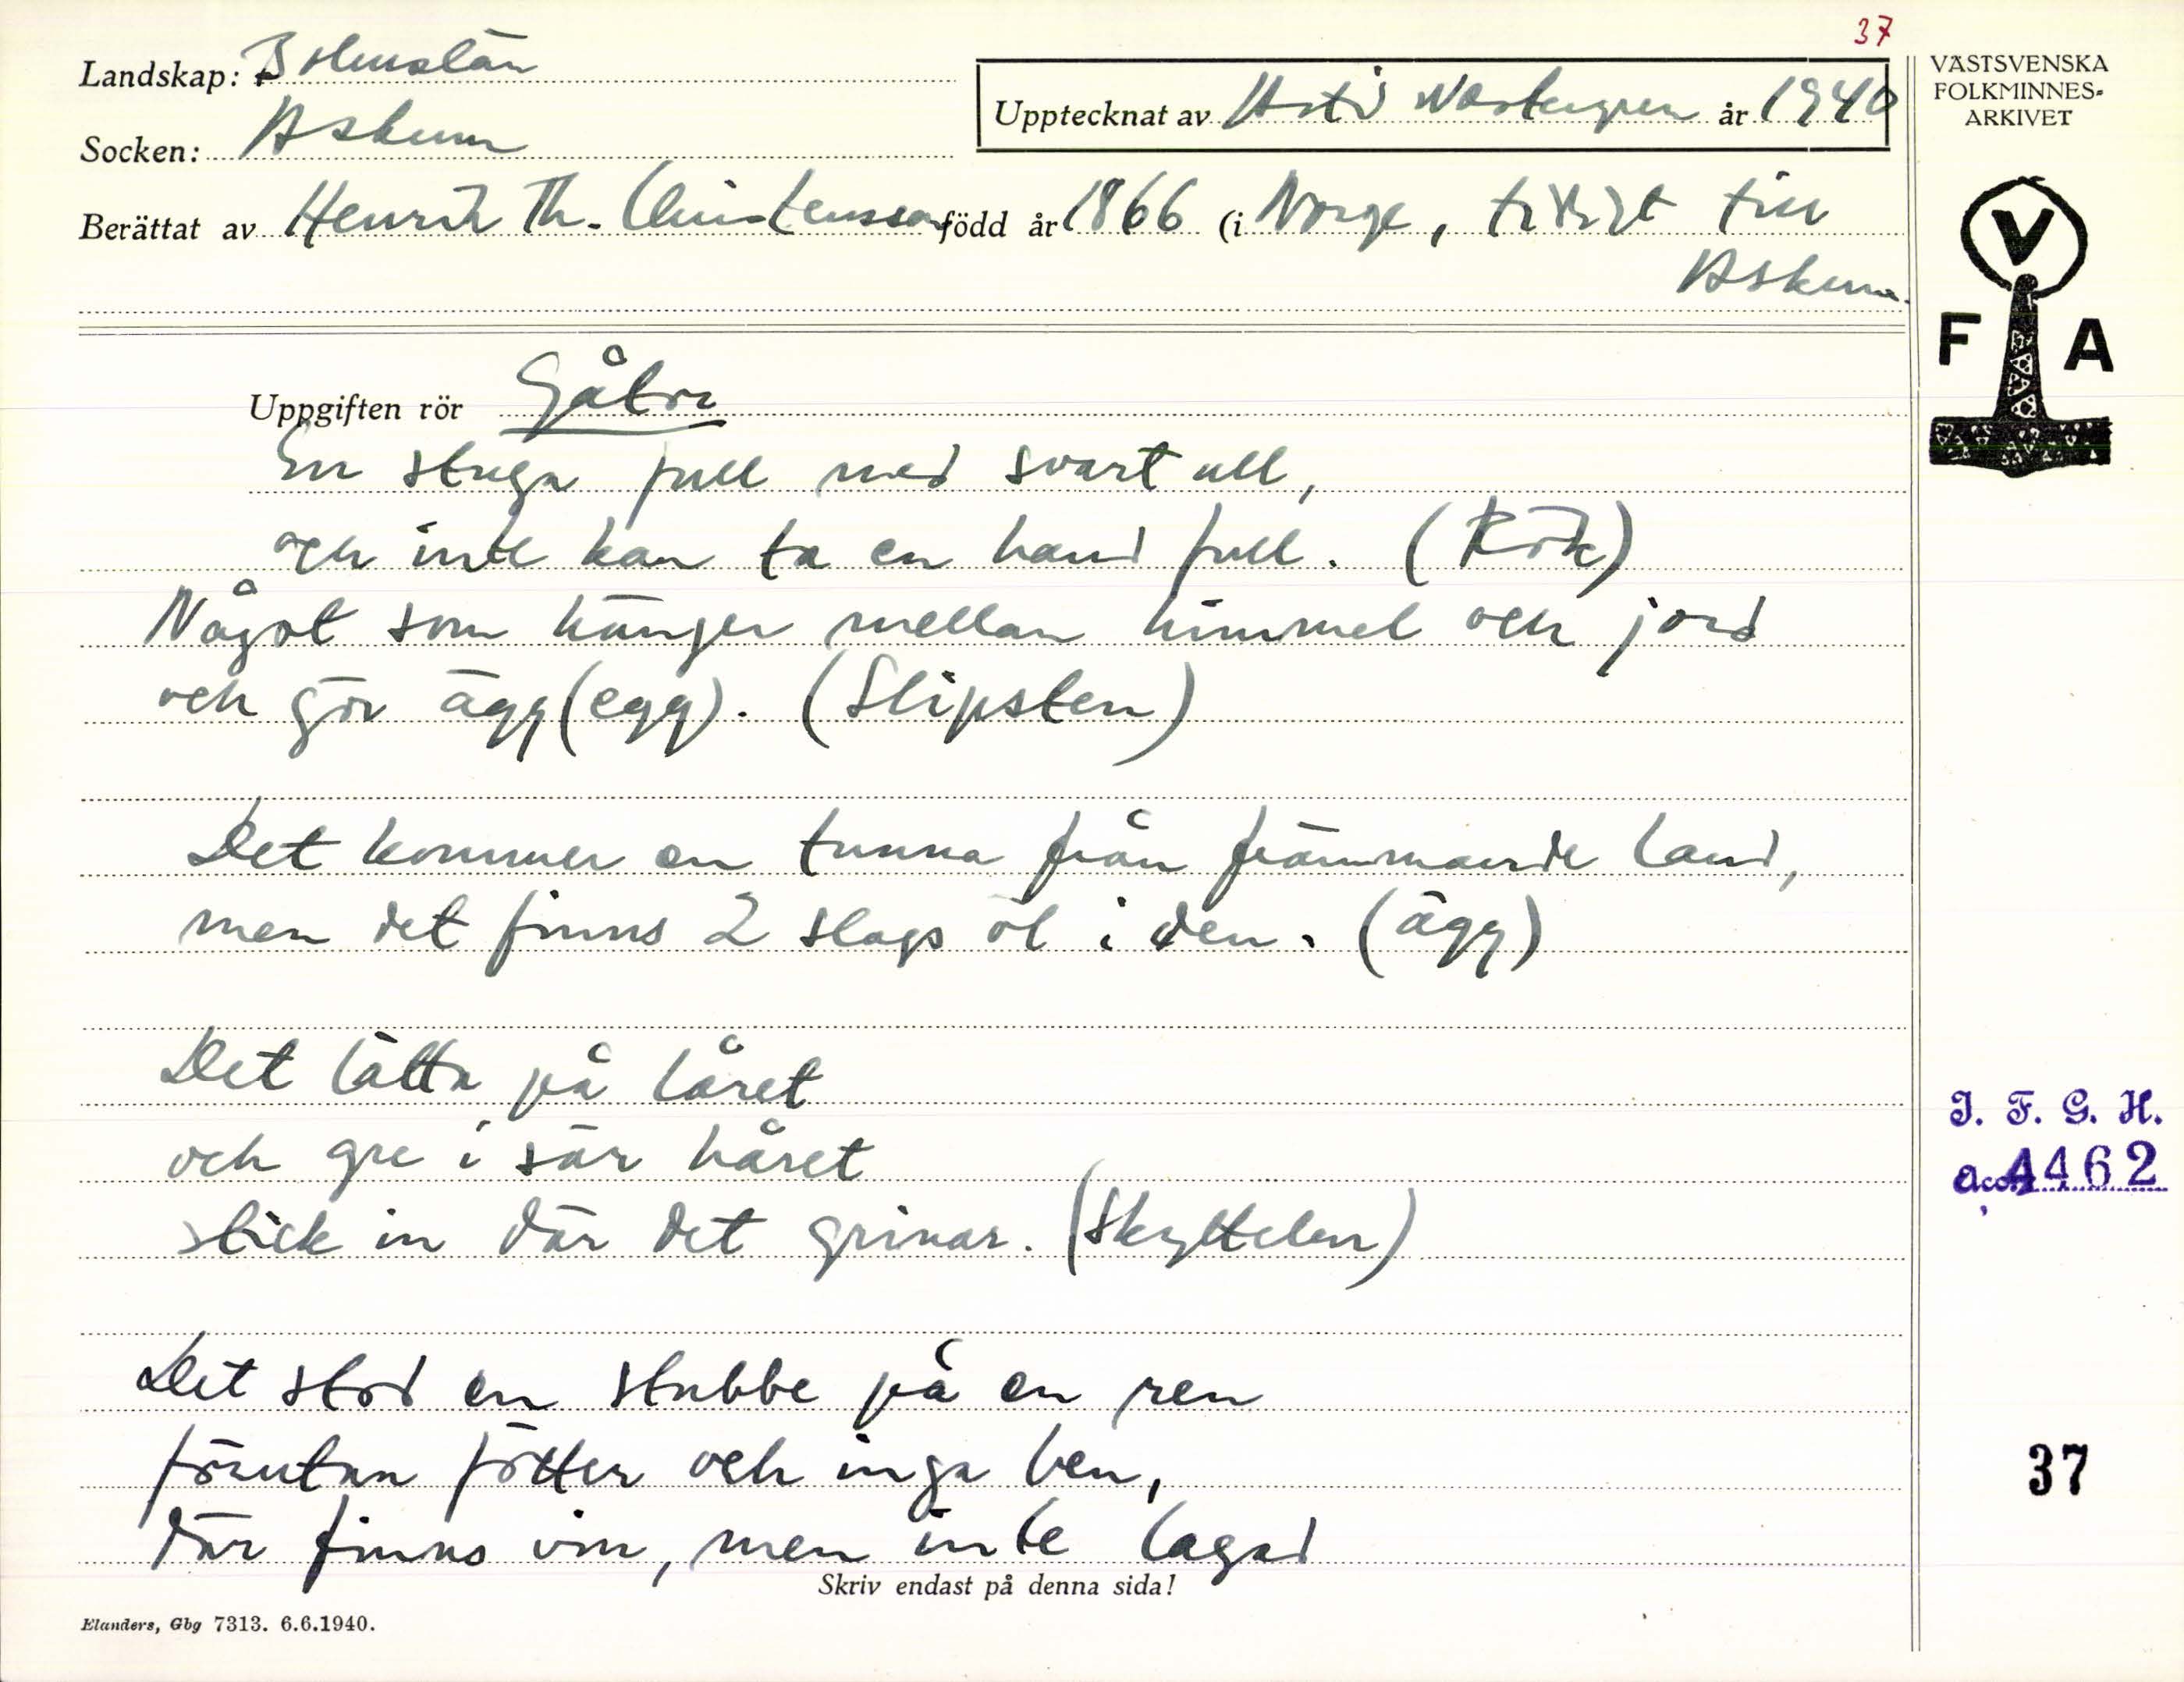 37
Landskap: Bohuslän
Socken: Askum
Upptecknat av Astri Westergren år 1940
Berättat av Henrik Th. Christensson född år 1866 (i Norge, flyttat till
Askum.
VÄSTSVENSKA
FOLKMINNES-
ARKIVET
V
F A
Uppgiften rör Gåtor
En stuga full med svart ull,
och inte kan ta en hand full. (Rök)
Något som hänger mellan himmel och jord
och gör ägg (egg). (Slipsten)
Det kommer en tunna från främmande land,
men det finns 2 slags öl i den. (ägg)
Det lätta på låret
och gre i sär håret
stick in där det grinar. (Skyttelen)
Det stod en stubbe på en ren
förutan fötter och inga ben,
där finns vin, men inte lagad
Skriv endast på denna sida!
Elanders, Gbg 7313. 6.6.1940.
I. F. G. H.
acc. 4462
37